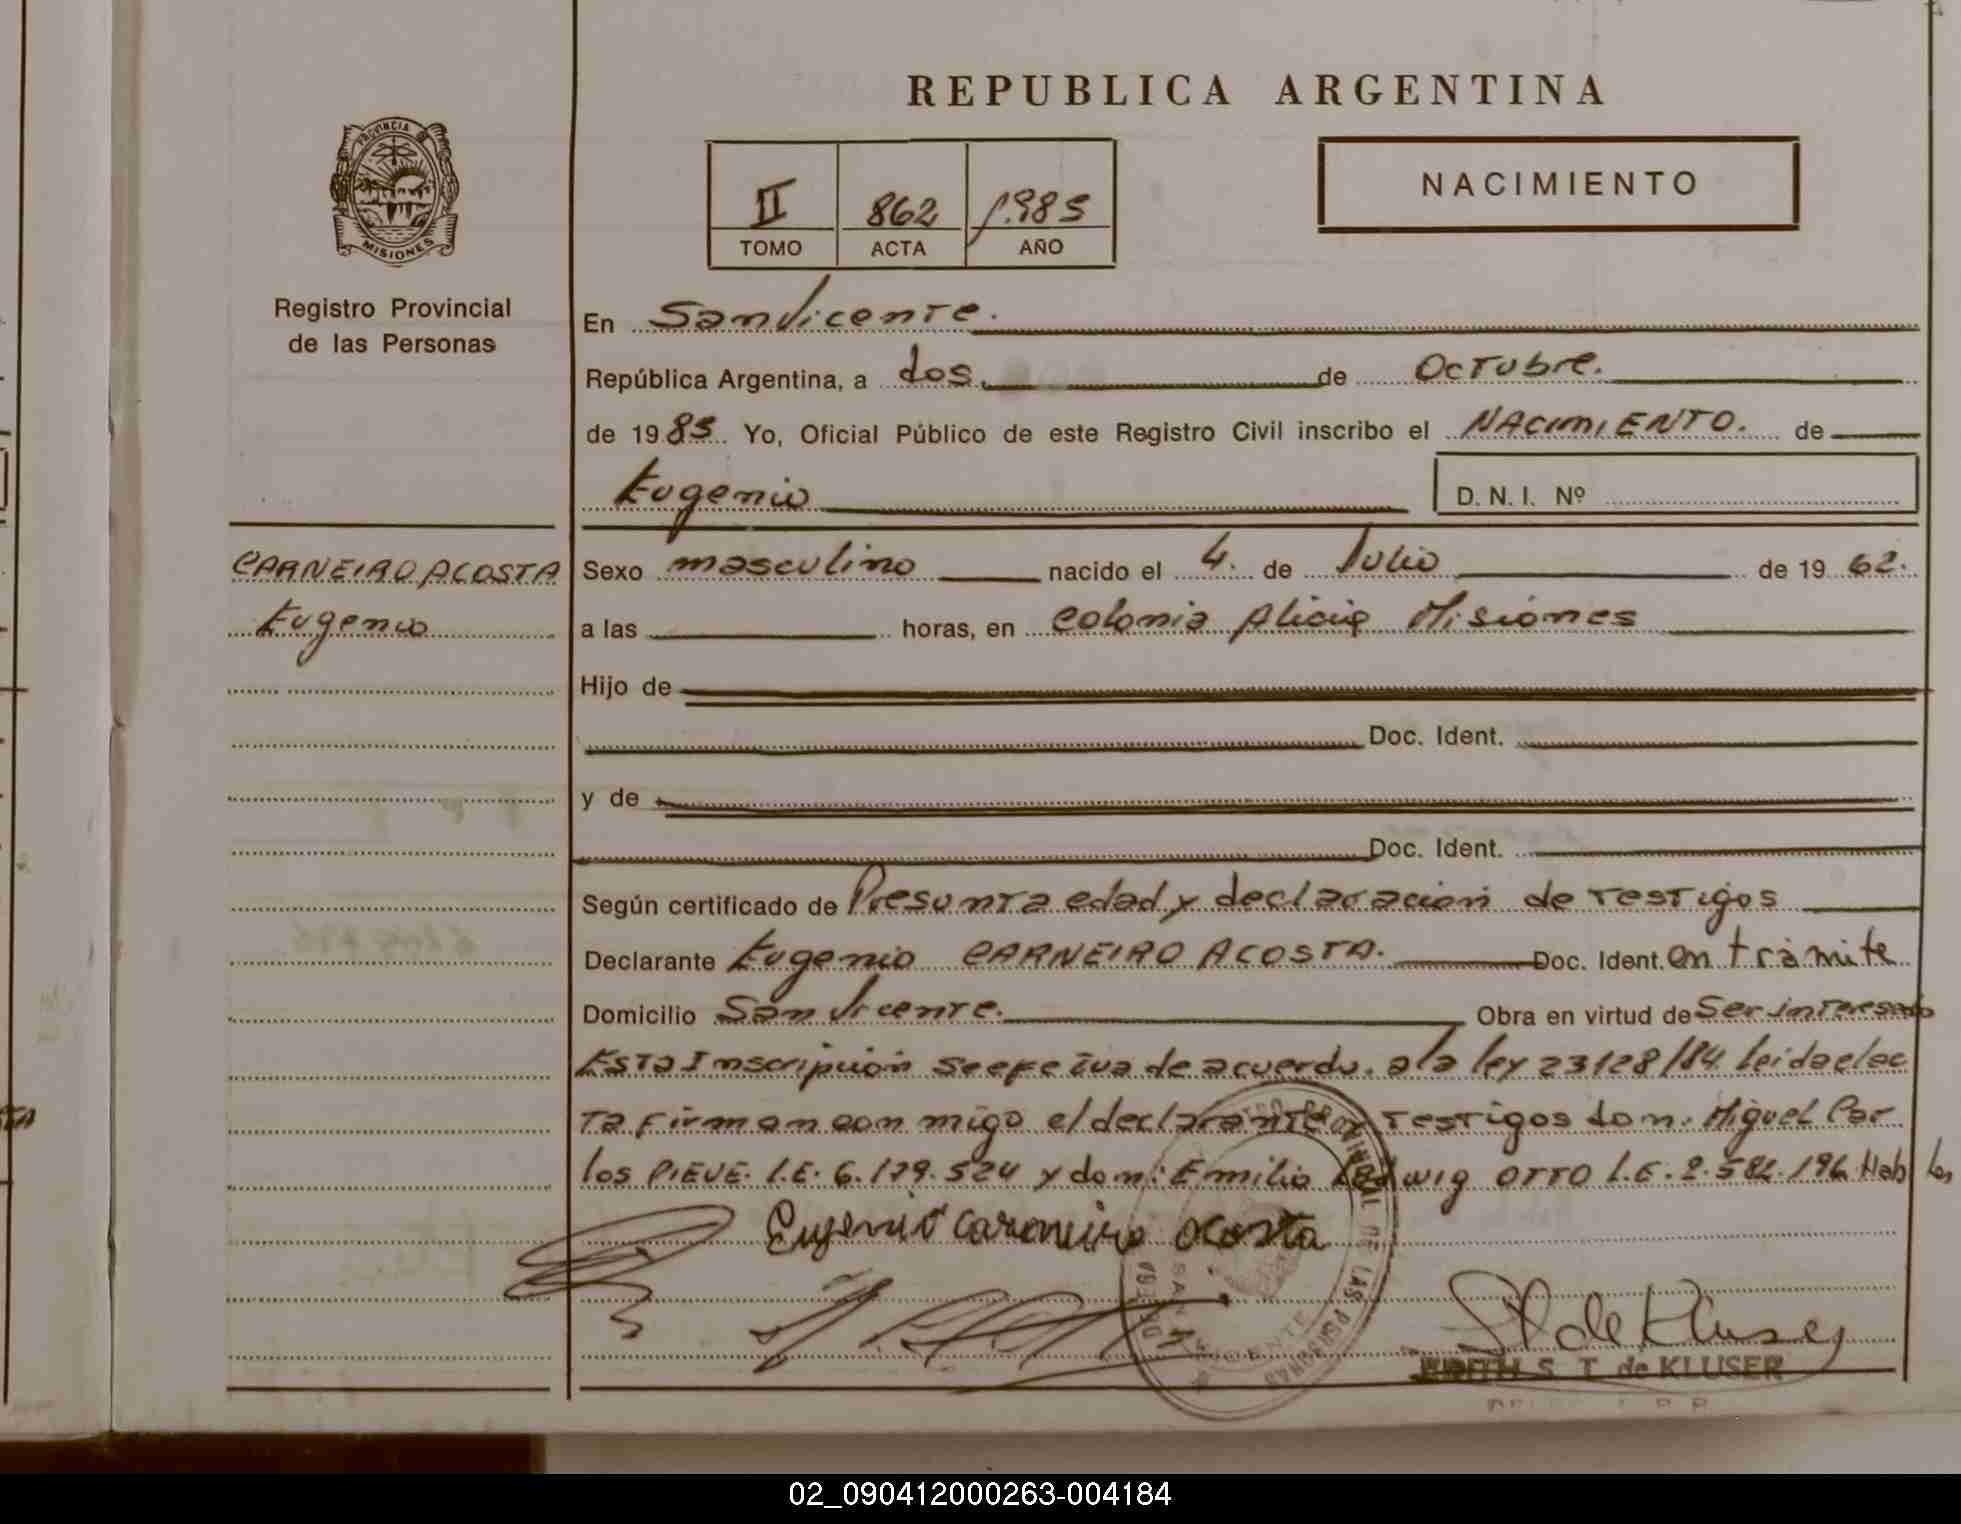 REPUBLICA ARGENTINA
PROVINCIA DE
MISIONES
Registro Provincial
de las Personas
II 862 1.985
TOMO ACTA AÑO
NACIMIENTO
En San Vicente.
República Argentina, a dos. de Octubre.
de 1985. Yo, Oficial Público de este Registro Civil inscribo el NACIMIENTO. de
Eugenio D. N. I. Nº
CARNEIRO ACOSTA
Eugenio
Sexo masculino nacido el 4. de Julio de 1962.
a las horas, en Colonia Alicia Misiones
Hijo de
Doc. Ident.
y de
Doc. Ident.
Según certificado de Presunta edad y declaración de testigos
Declarante Eugenio CARNEIRO ACOSTA. Doc. Ident. en trámite
Domicilio San Vicente. Obra en virtud de Ser interesado
Esta Inscripción se efetua de acuerdo. a la ley 23128/84. Leida el ac
ta firman con migo el declarante y testigos don: Miguel Car
los PIEVE. I.E. 6.179.524 y don: Emilio Ludwig OTTO I.E. 2.582.196 Hab los
Eugenio Carneiro Acosta
REGISTRO PROVINCIAL DE LAS PERSONAS
SAN VICENTE
de Kluser
JUDITH S. T. de KLUSER
02_090412000263-004184